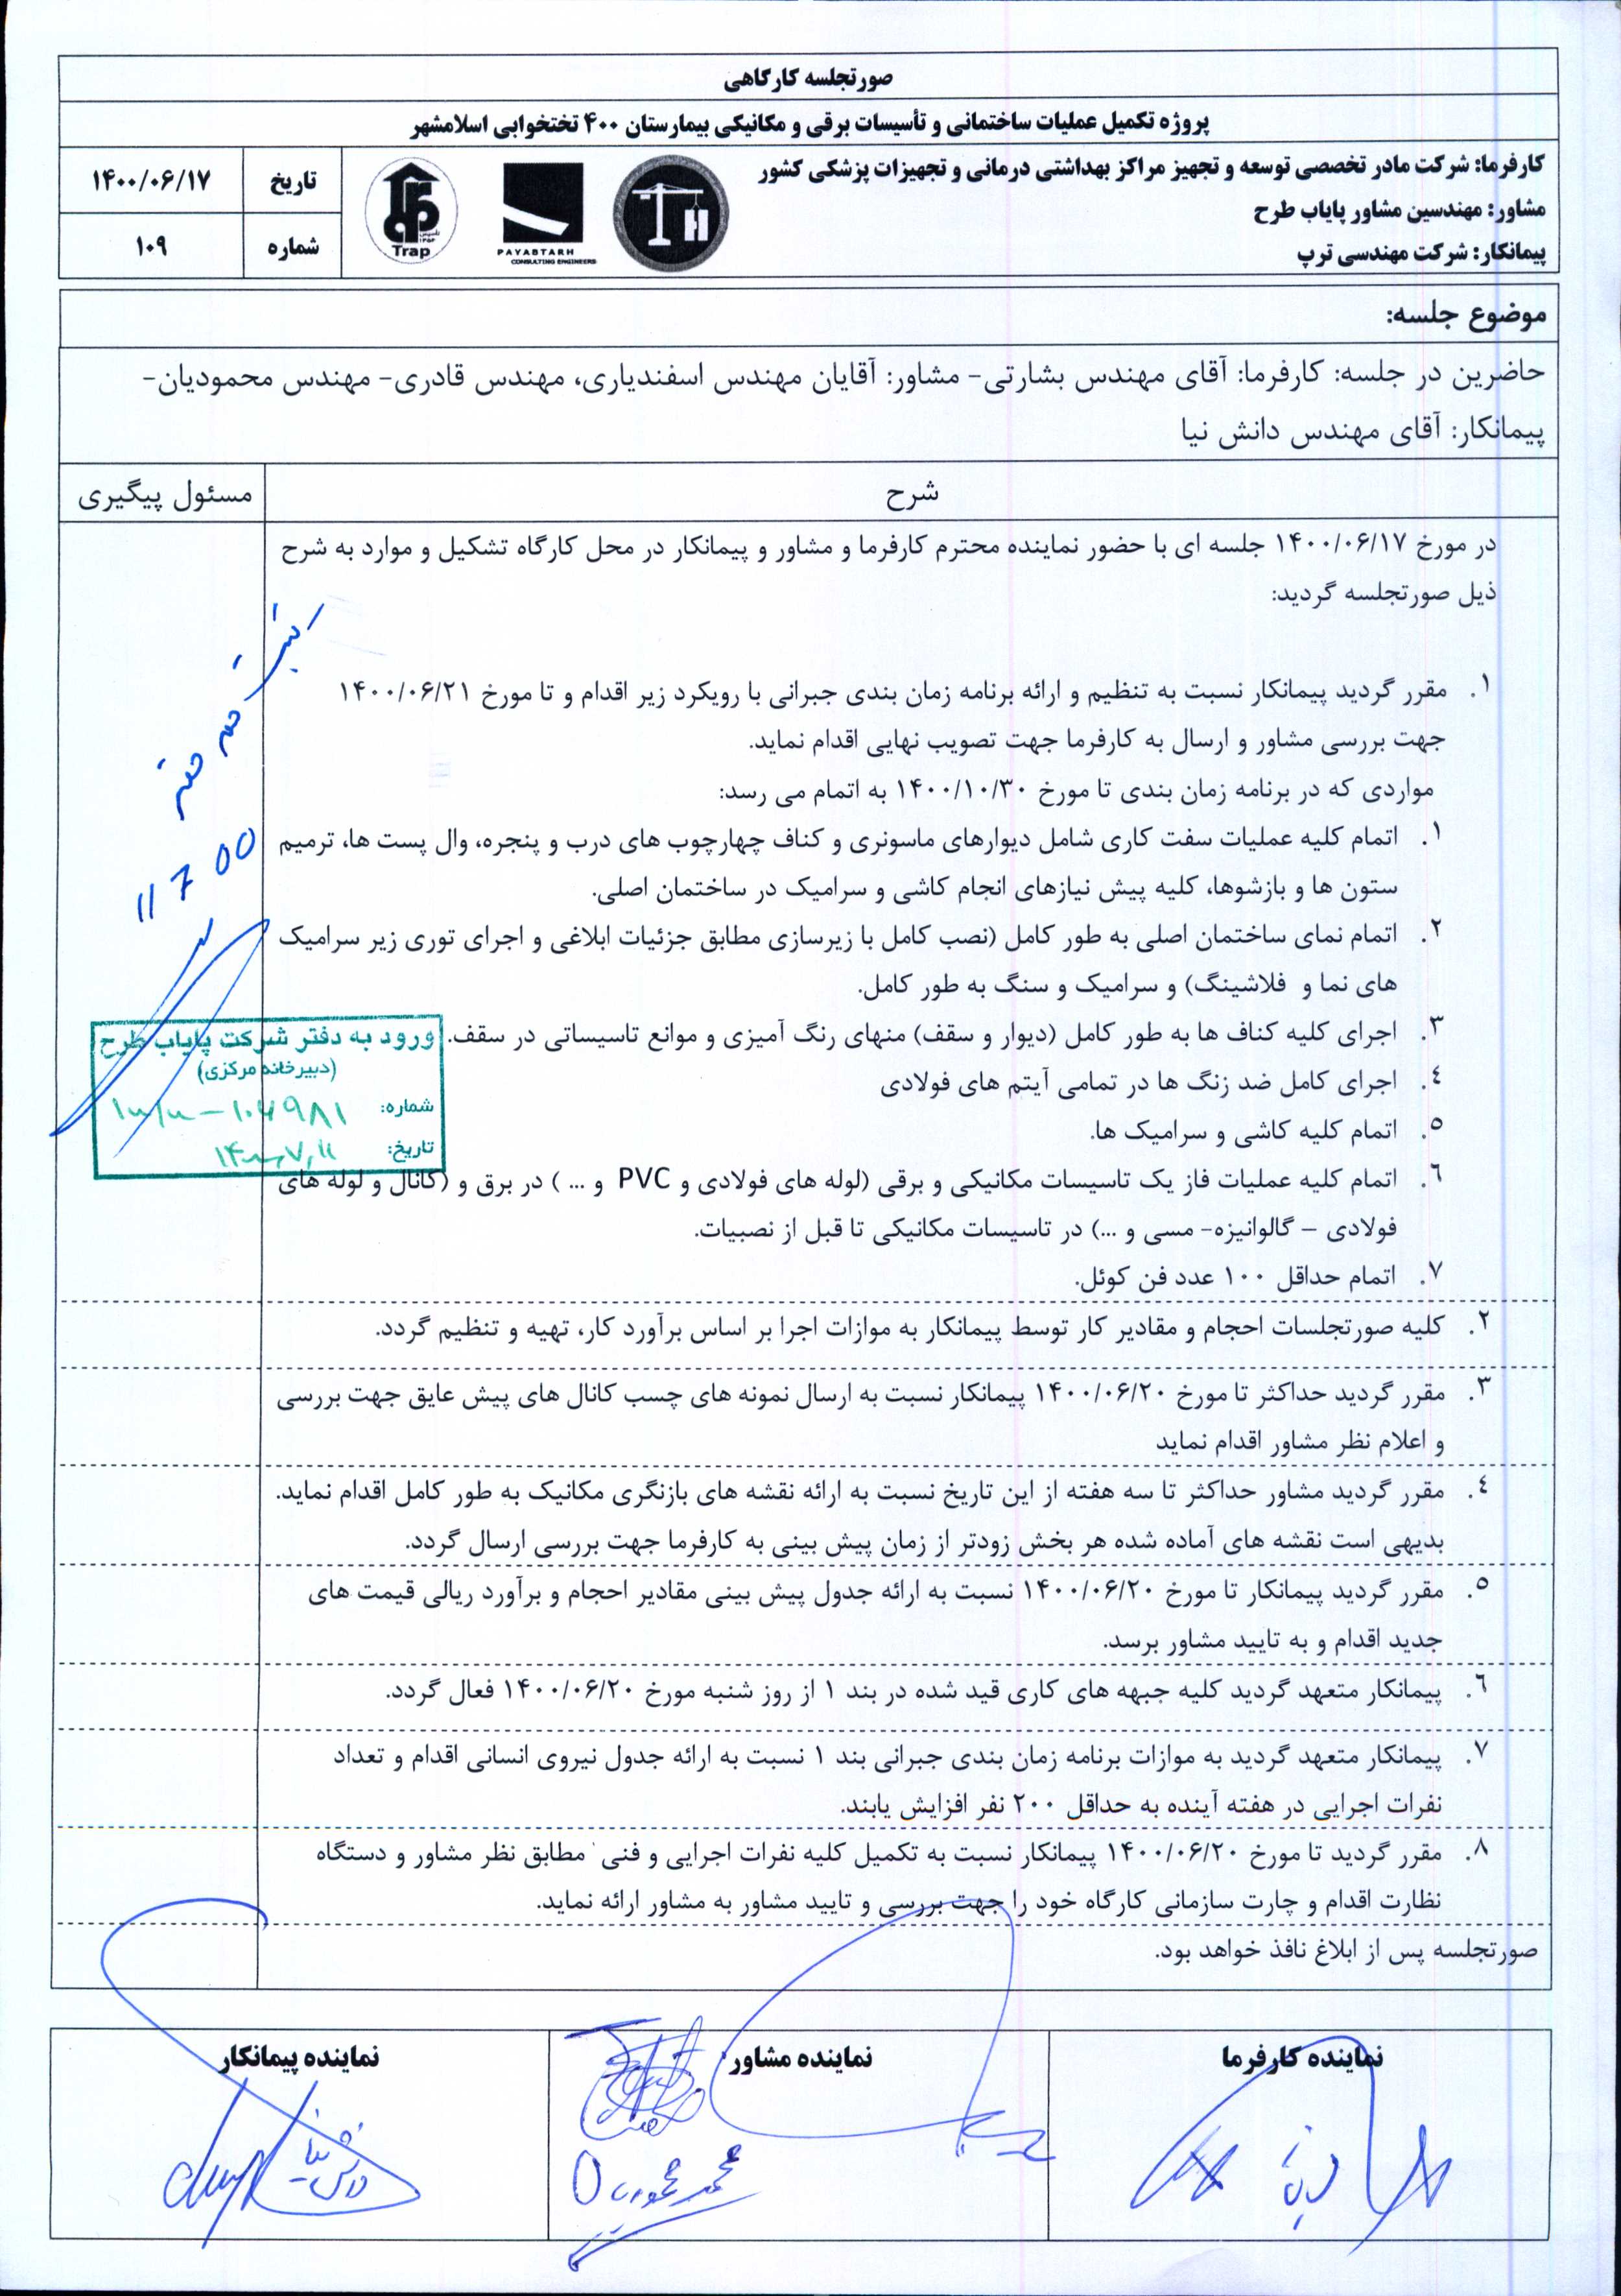 صورتجلسه کارگاهی
پروژه تکمیل عملیات ساختمانی و تأسیسات برقی و مکانیکی بیمارستان ۴۰۰ تختخوابی اسلامشهر
کارفرما: شرکت مادر تخصصی توسعه و تجهیز مراکز بهداشتی درمانی و تجهیزات پزشکی کشور
مشاور: مهندسین مشاور پایاب طرح
پیمانکار: شرکت مهندسی ترپ
PAYABTARH
CONSULTING ENGINEERS
تاسیس
۱۳۵۳
Trap
تاریخ
۱۴۰۰/۰۶/۱۷
شماره
۱۰۹
موضوع جلسه:
حاضرین در جلسه: کارفرما: آقای مهندس بشارتی- مشاور: آقایان مهندس اسفندیاری، مهندس قادری- مهندس محمودیان-
پیمانکار: آقای مهندس دانش نیا
شرح
مسئول پیگیری
در مورخ ۱۴۰۰/۰۶/۱۷ جلسه ای با حضور نماینده محترم کارفرما و مشاور و پیمانکار در محل کارگاه تشکیل و موارد به شرح
ذیل صورتجلسه گردید:
۱. مقرر گردید پیمانکار نسبت به تنظیم و ارائه برنامه زمان بندی جبرانی با رویکرد زیر اقدام و تا مورخ ۱۴۰۰/۰۶/۲۱
جهت بررسی مشاور و ارسال به کارفرما جهت تصویب نهایی اقدام نماید.
مواردی که در برنامه زمان بندی تا مورخ ۱۴۰۰/۱۰/۳۰ به اتمام می رسد:
۱. اتمام کلیه عملیات سفت کاری شامل دیوارهای ماسونری و کناف چهارچوب های درب و پنجره، وال پست ها، ترمیم
ستون ها و بازشوها، کلیه پیش نیازهای انجام کاشی و سرامیک در ساختمان اصلی.
۲. اتمام نمای ساختمان اصلی به طور کامل (نصب کامل با زیرسازی مطابق جزئیات ابلاغی و اجرای توری زیر سرامیک
های نما و فلاشینگ) و سرامیک و سنگ به طور کامل.
۳. اجرای کلیه کناف ها به طور کامل (دیوار و سقف) منهای رنگ آمیزی و موانع تاسیساتی در سقف.
٤. اجرای کامل ضد زنگ ها در تمامی آیتم های فولادی
٥. اتمام کلیه کاشی و سرامیک ها.
٦. اتمام کلیه عملیات فاز یک تاسیسات مکانیکی و برقی (لوله های فولادی و PVC و ... ) در برق و (کانال و لوله های
فولادی – گالوانیزه- مسی و ...) در تاسیسات مکانیکی تا قبل از نصبیات.
۷. اتمام حداقل ۱۰۰ عدد فن کوئل.
11 7 00
ورود به دفتر شرکت پایاب طرح
(دبیرخانه مرکزی)
شماره:
تاریخ:
۲. کلیه صورتجلسات احجام و مقادیر کار توسط پیمانکار به موازات اجرا بر اساس برآورد کار، تهیه و تنظیم گردد.
۳. مقرر گردید حداکثر تا مورخ ۱۴۰۰/۰۶/۲۰ پیمانکار نسبت به ارسال نمونه های چسب کانال های پیش عایق جهت بررسی
و اعلام نظر مشاور اقدام نماید
٤. مقرر گردید مشاور حداکثر تا سه هفته از این تاریخ نسبت به ارائه نقشه های بازنگری مکانیک به طور کامل اقدام نماید.
بدیهی است نقشه های آماده شده هر بخش زودتر از زمان پیش بینی به کارفرما جهت بررسی ارسال گردد.
٥. مقرر گردید پیمانکار تا مورخ ۱۴۰۰/۰۶/۲۰ نسبت به ارائه جدول پیش بینی مقادیر احجام و برآورد ریالی قیمت های
جدید اقدام و به تایید مشاور برسد.
٦. پیمانکار متعهد گردید کلیه جبهه های کاری قید شده در بند ۱ از روز شنبه مورخ ۱۴۰۰/۰۶/۲۰ فعال گردد.
۷. پیمانکار متعهد گردید به موازات برنامه زمان بندی جبرانی بند ۱ نسبت به ارائه جدول نیروی انسانی اقدام و تعداد
نفرات اجرایی در هفته آینده به حداقل ۲۰۰ نفر افزایش یابند.
۸. مقرر گردید تا مورخ ۱۴۰۰/۰۶/۲۰ پیمانکار نسبت به تکمیل کلیه نفرات اجرایی و فنی مطابق نظر مشاور و دستگاه
نظارت اقدام و چارت سازمانی کارگاه خود را جهت بررسی و تایید مشاور به مشاور ارائه نماید.
صورتجلسه پس از ابلاغ نافذ خواهد بود.
نماینده کارفرما
نماینده مشاور
نماینده پیمانکار
محمد محمودیان
دانش نیا